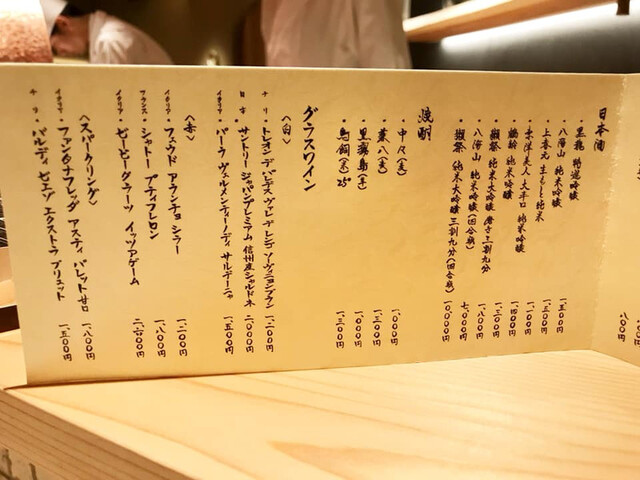 日本酒
・黒龍 特選吟醸 一、五〇〇円
・八海山 純米吟醸 一、三〇〇円
・上喜元 生もと純米 一、二〇〇円
・東洋美人 大辛口 純米吟醸 一、一〇〇円
・鶴齢 純米吟醸 一、四〇〇円
・獺祭 純米大吟醸 磨き三割九分 一、三〇〇円
・八海山 純米吟醸(四合瓶) 七、〇〇〇円
・獺祭 純米大吟醸 三割九分(四合瓶) 一〇、〇〇〇円
焼酎
・中々(麦) 一、〇〇〇円
・兼八(麦) 一、三〇〇円
・黒霧島(芋) 一、〇〇〇円
・鳥飼(米)25° 一、三〇〇円
グラスワイン
〈白〉
チリ・トレオン デ パレデス ヴァレ デ レンゴ ソーヴィニヨンブラン 一、二〇〇円
日本・サントリー ジャパンプレミアム 信州産シャルドネ 二、〇〇〇円
イタリア・パーラ ヴェルメンティーノ ディ サルデーニャ 一、五〇〇円
〈赤〉
イタリア・フェウド アランチョ シラー 一、二〇〇円
フランス・シャトー プティ フレロン 一、八〇〇円
イタリア・ビービーグラーツ イッツアゲーム 二、六〇〇円
〈スパークリング〉
イタリア・ファンタナフレッダ アスティ 一、八〇〇円
チリ・バルディビエソ エクストラ ブリュット 一、五〇〇円